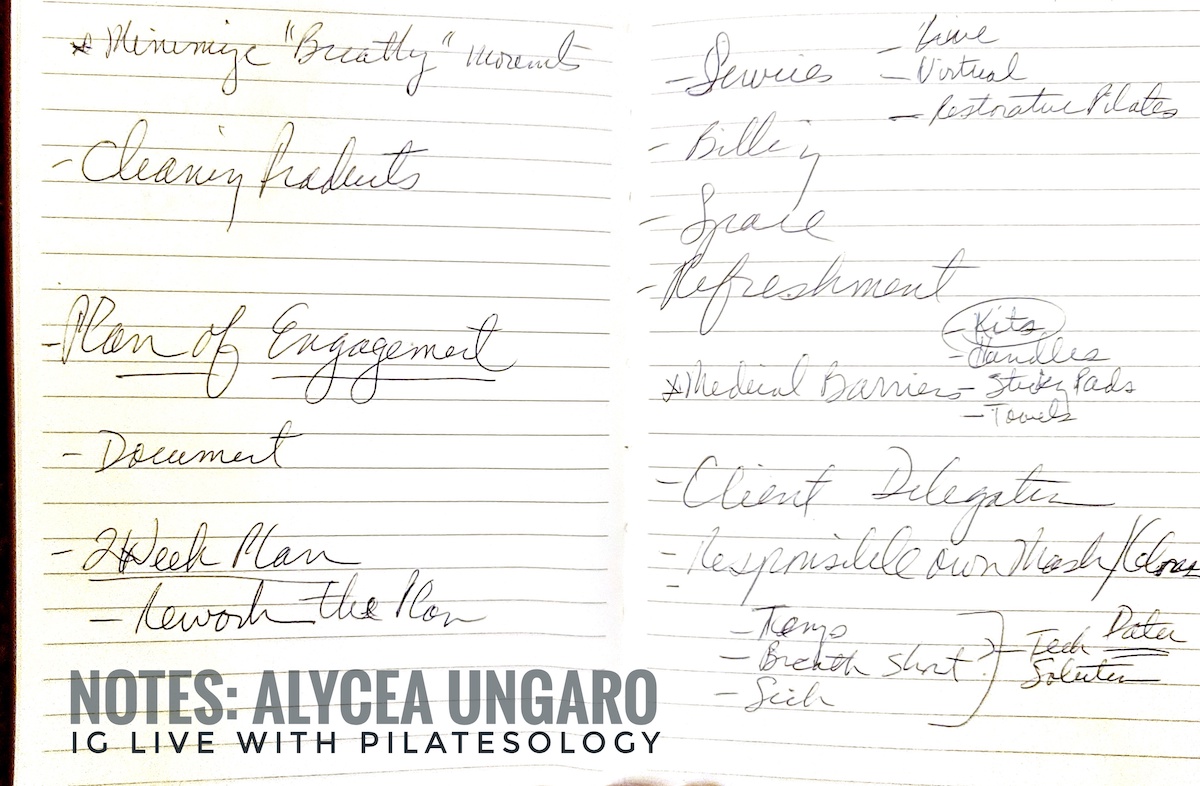 * Minimize "Breathy" Movements
- Cleaning Products
- Plan of Engagement
- Document
- 2 Week Plan
- Rework the Plan
- Services
- Live
- Virtual
- Restorative Pilates
- Billing
- Space
- Refreshment
- Kits
- Handles
* Medical Barriers - Sticky Pads
- Towels
- Client Delegation
- Responsible own Mask/Gloves
- Temp
- Breath Short
- Sick
- Tech Data
Solution
NOTES: ALYCEA UNGARO
IG LIVE WITH PILATESOLOGY